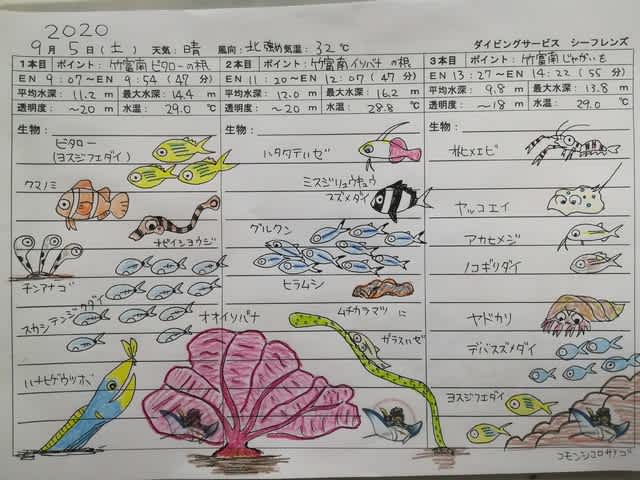 2020
9月5日(土) 天気:晴 風向:北強め 気温:32℃
ダイビングサービス シーフレンズ
1本目 ポイント:竹富南ビタローの根
EN 9:07〜EN 9:54 (47分)
平均水深: 11.2 m 最大水深: 14.4 m
透明度: 〜20 m 水温: 29.0 ℃
生物:
ビタロー
(ヨスジフエダイ)
クマノミ
オイランヨウジ
チンアナゴ
スカシテンジクダイ
ハナヒゲウツボ
2本目 ポイント:竹富南イソバナの根
EN 11:20〜EN 12:07 (47分)
平均水深: 12.0 m 最大水深: 16.2 m
透明度: 〜20 m 水温: 28.8 ℃
生物:
ハタタテハゼ
ミスジリュウキュウ
スズメダイ
グルクン
ヒラムシ
オオイソバナ
ムチカラマツ に
ガラスハゼ
3本目 ポイント:竹富南じゃがいも
EN 13:27〜EN 14:22 (55分)
平均水深: 9.8 m 最大水深: 13.8 m
透明度: 〜18 m 水温: 29.0 ℃
生物:
オトヒメエビ
ヤッコエイ
アカヒメジ
ノコギリダイ
ヤドカリ
デバスズメダイ
ヨスジフエダイ
コモンシコロサンゴ